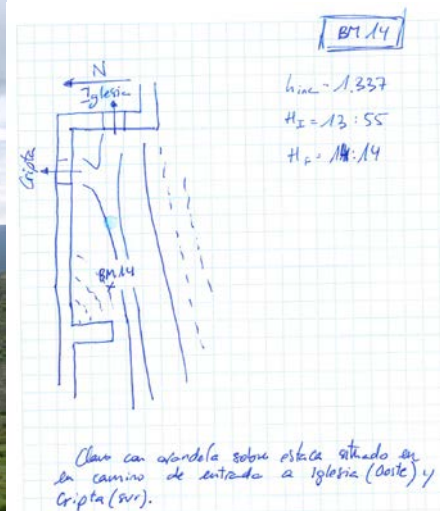 BM 14
N
Iglesia
Cripta
BM 14
h inc = 1.337
HI = 13:55
HF = 14:14
Clavo con arandela sobre estaca situado en
en camino de entrada a Iglesia (Oeste) y
Cripta (sur).